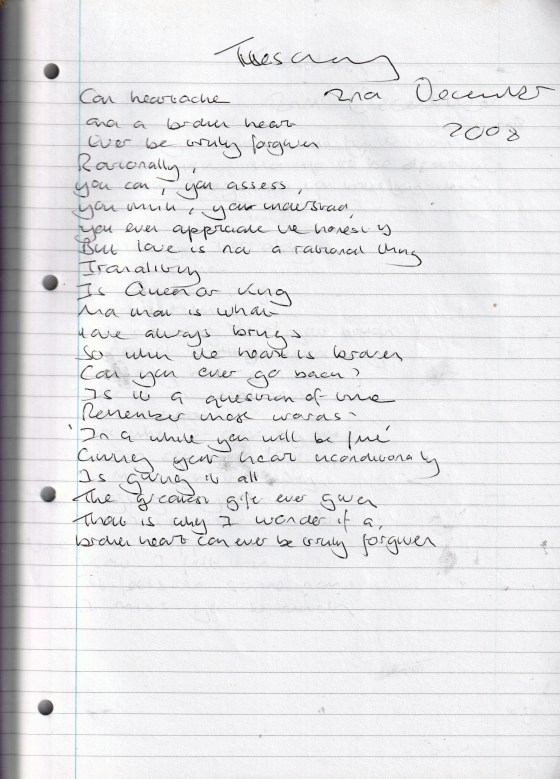 Tuesday
2nd December
2008
Can heartache
and a broken heart
Ever be truly forgiven
Rationally,
you can, you assess,
you think, you understand,
you even appreciate the honesty
But love is not a rational thing
Irrationality
Is Queen or King
And that is what
love always brings
So when the heart is broken
Can you ever go back?
Is it a question of time
Remember those words-
'In a while you will be fine'
Giving your heart unconditionally
Is giving it all
The greatest gift ever given
That is why I wonder if a,
broken heart can ever be truly forgiven